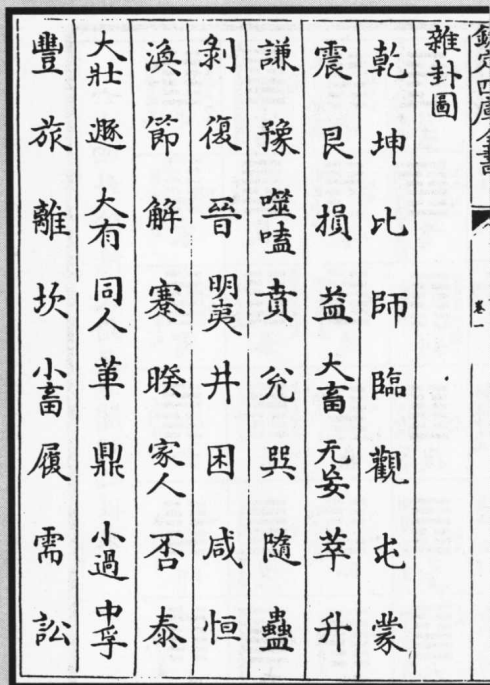 欽定四庫全書
卷一
雜卦圖
乾 坤 比 師 臨 觀 屯 蒙
震 艮 損 益 大畜 无妄 萃 升
謙 豫 噬嗑 賁 兌 巽 隨 蠱
剝 復 晉 明夷 井 困 咸 恒
渙 節 解 蹇 睽 家人 否 泰
大壯 遯 大有 同人 革 鼎 小過 中孚
豐 旅 離 坎 小畜 履 需 訟